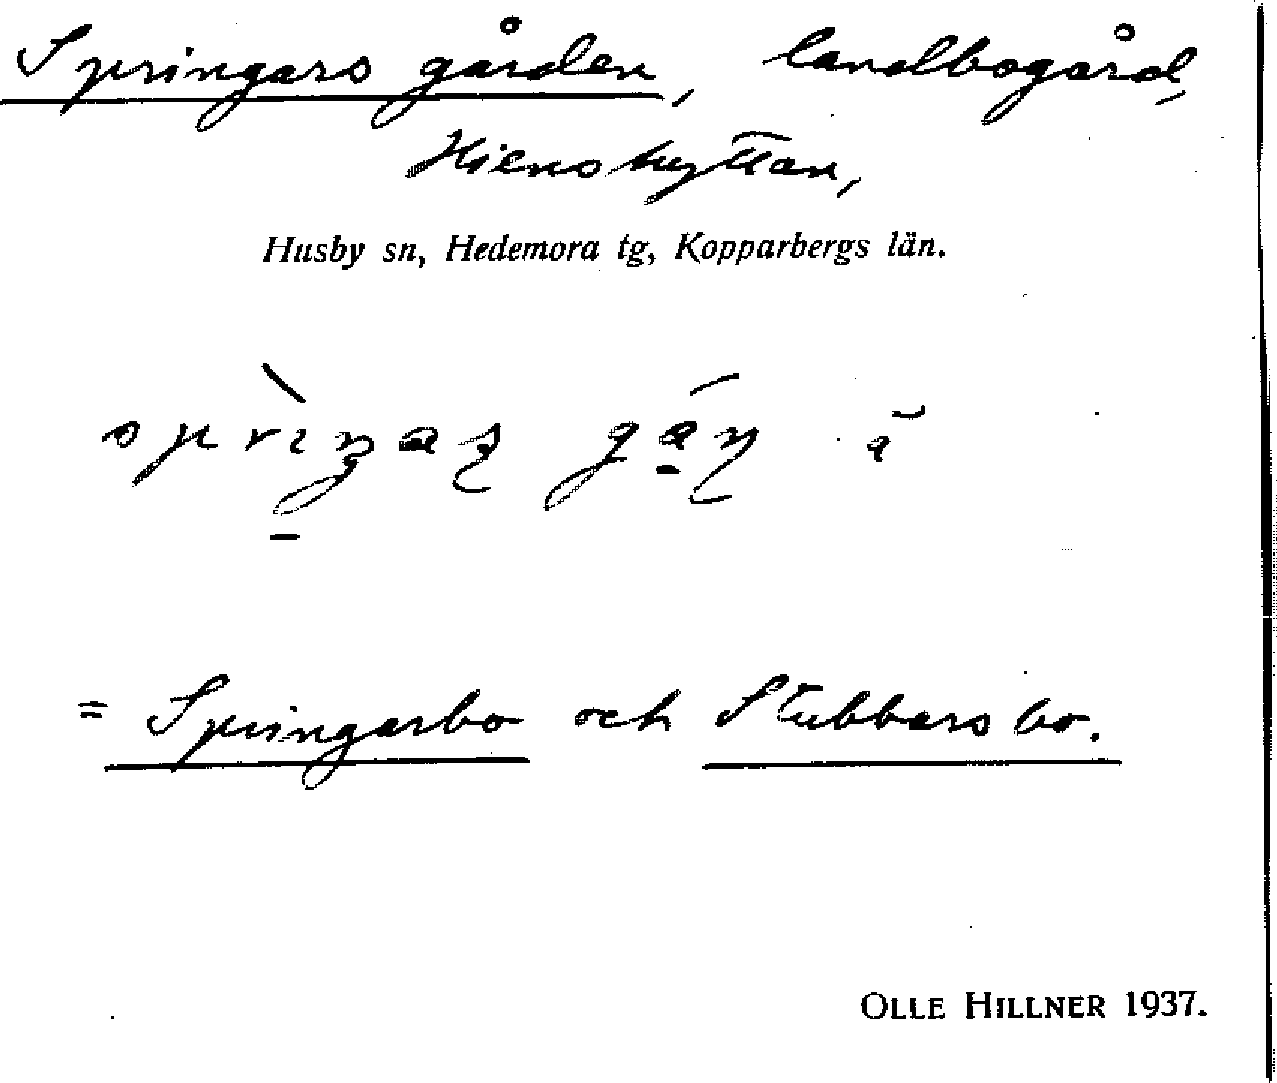 Springars gården, landbogård,
Kienshyttan,
Husby sn, Hedemora tg, Kopparbergs län.
= Springarbo och Stubbarsbo.
OLLE HILLNER 1937.